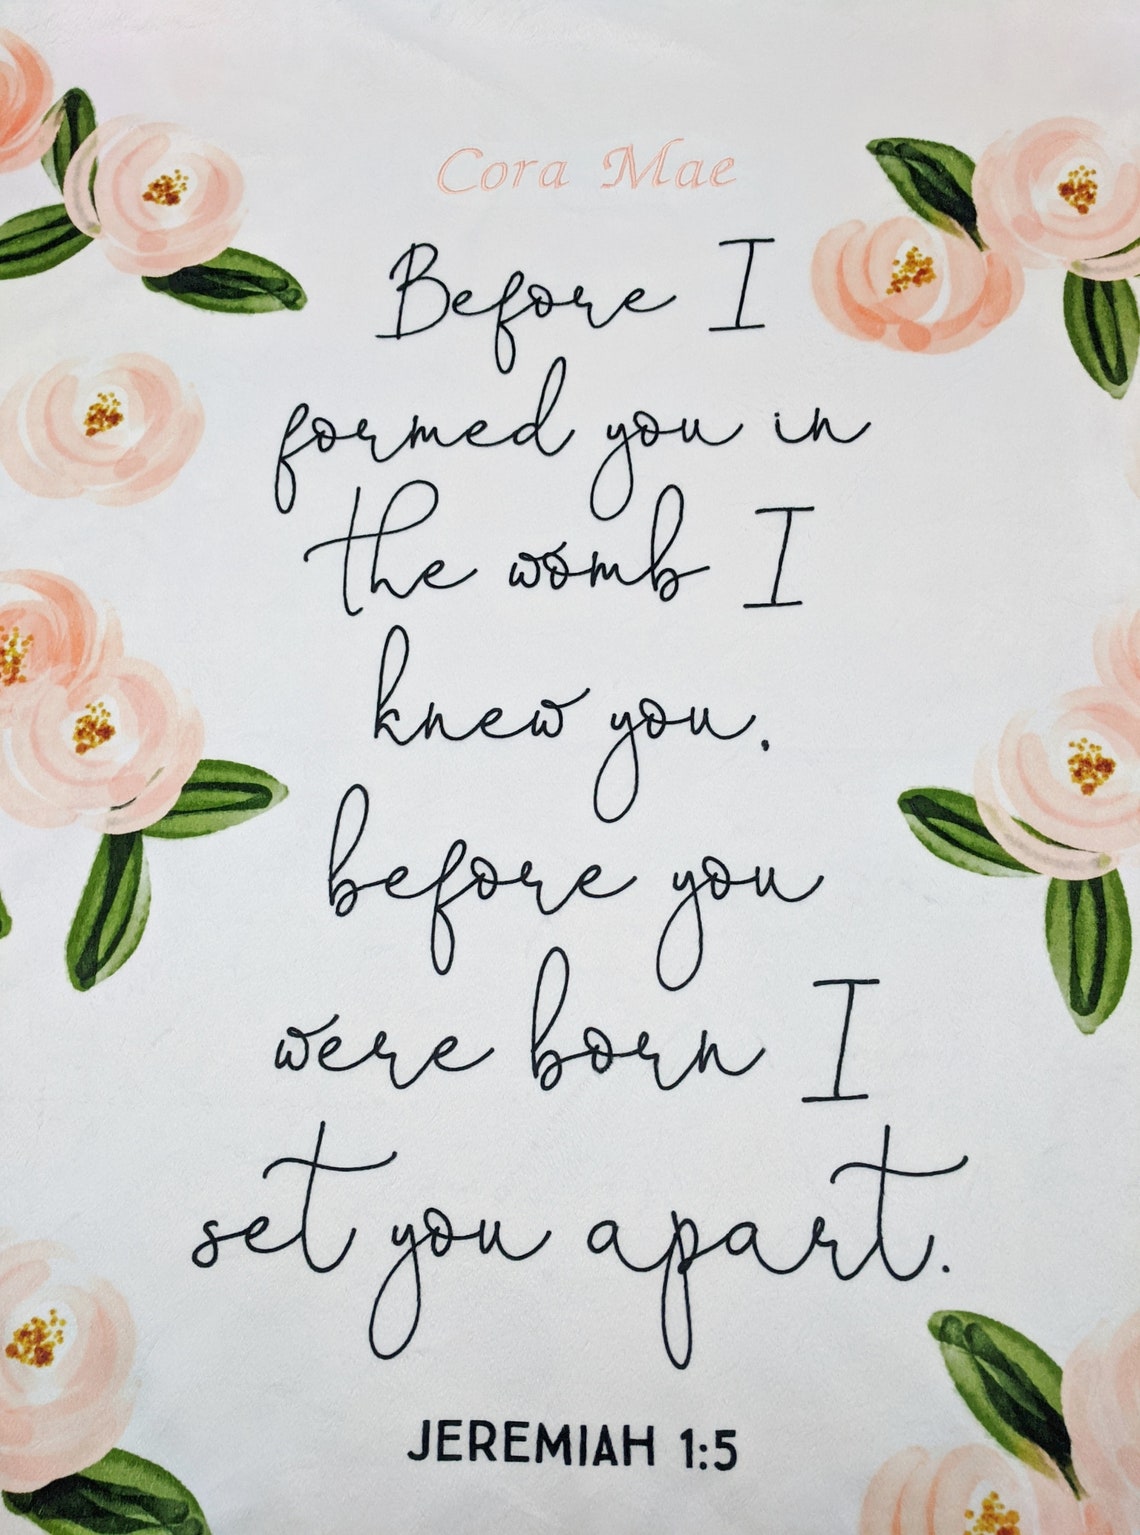 Cora Mae
Before I
formed you in
the womb I
knew you,
before you
were born I
set you apart.
JEREMIAH 1:5